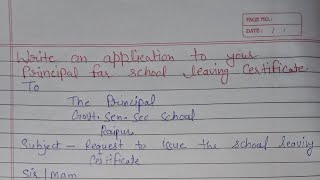 PAGE NO.:
DATE: / /
Write an application to your
Principal for school leaving Certificate
To
The Principal
Govt. Sen. Sec school
Raipur
Subject - Request to issue the school leaving
Certificate
Sir / Mam